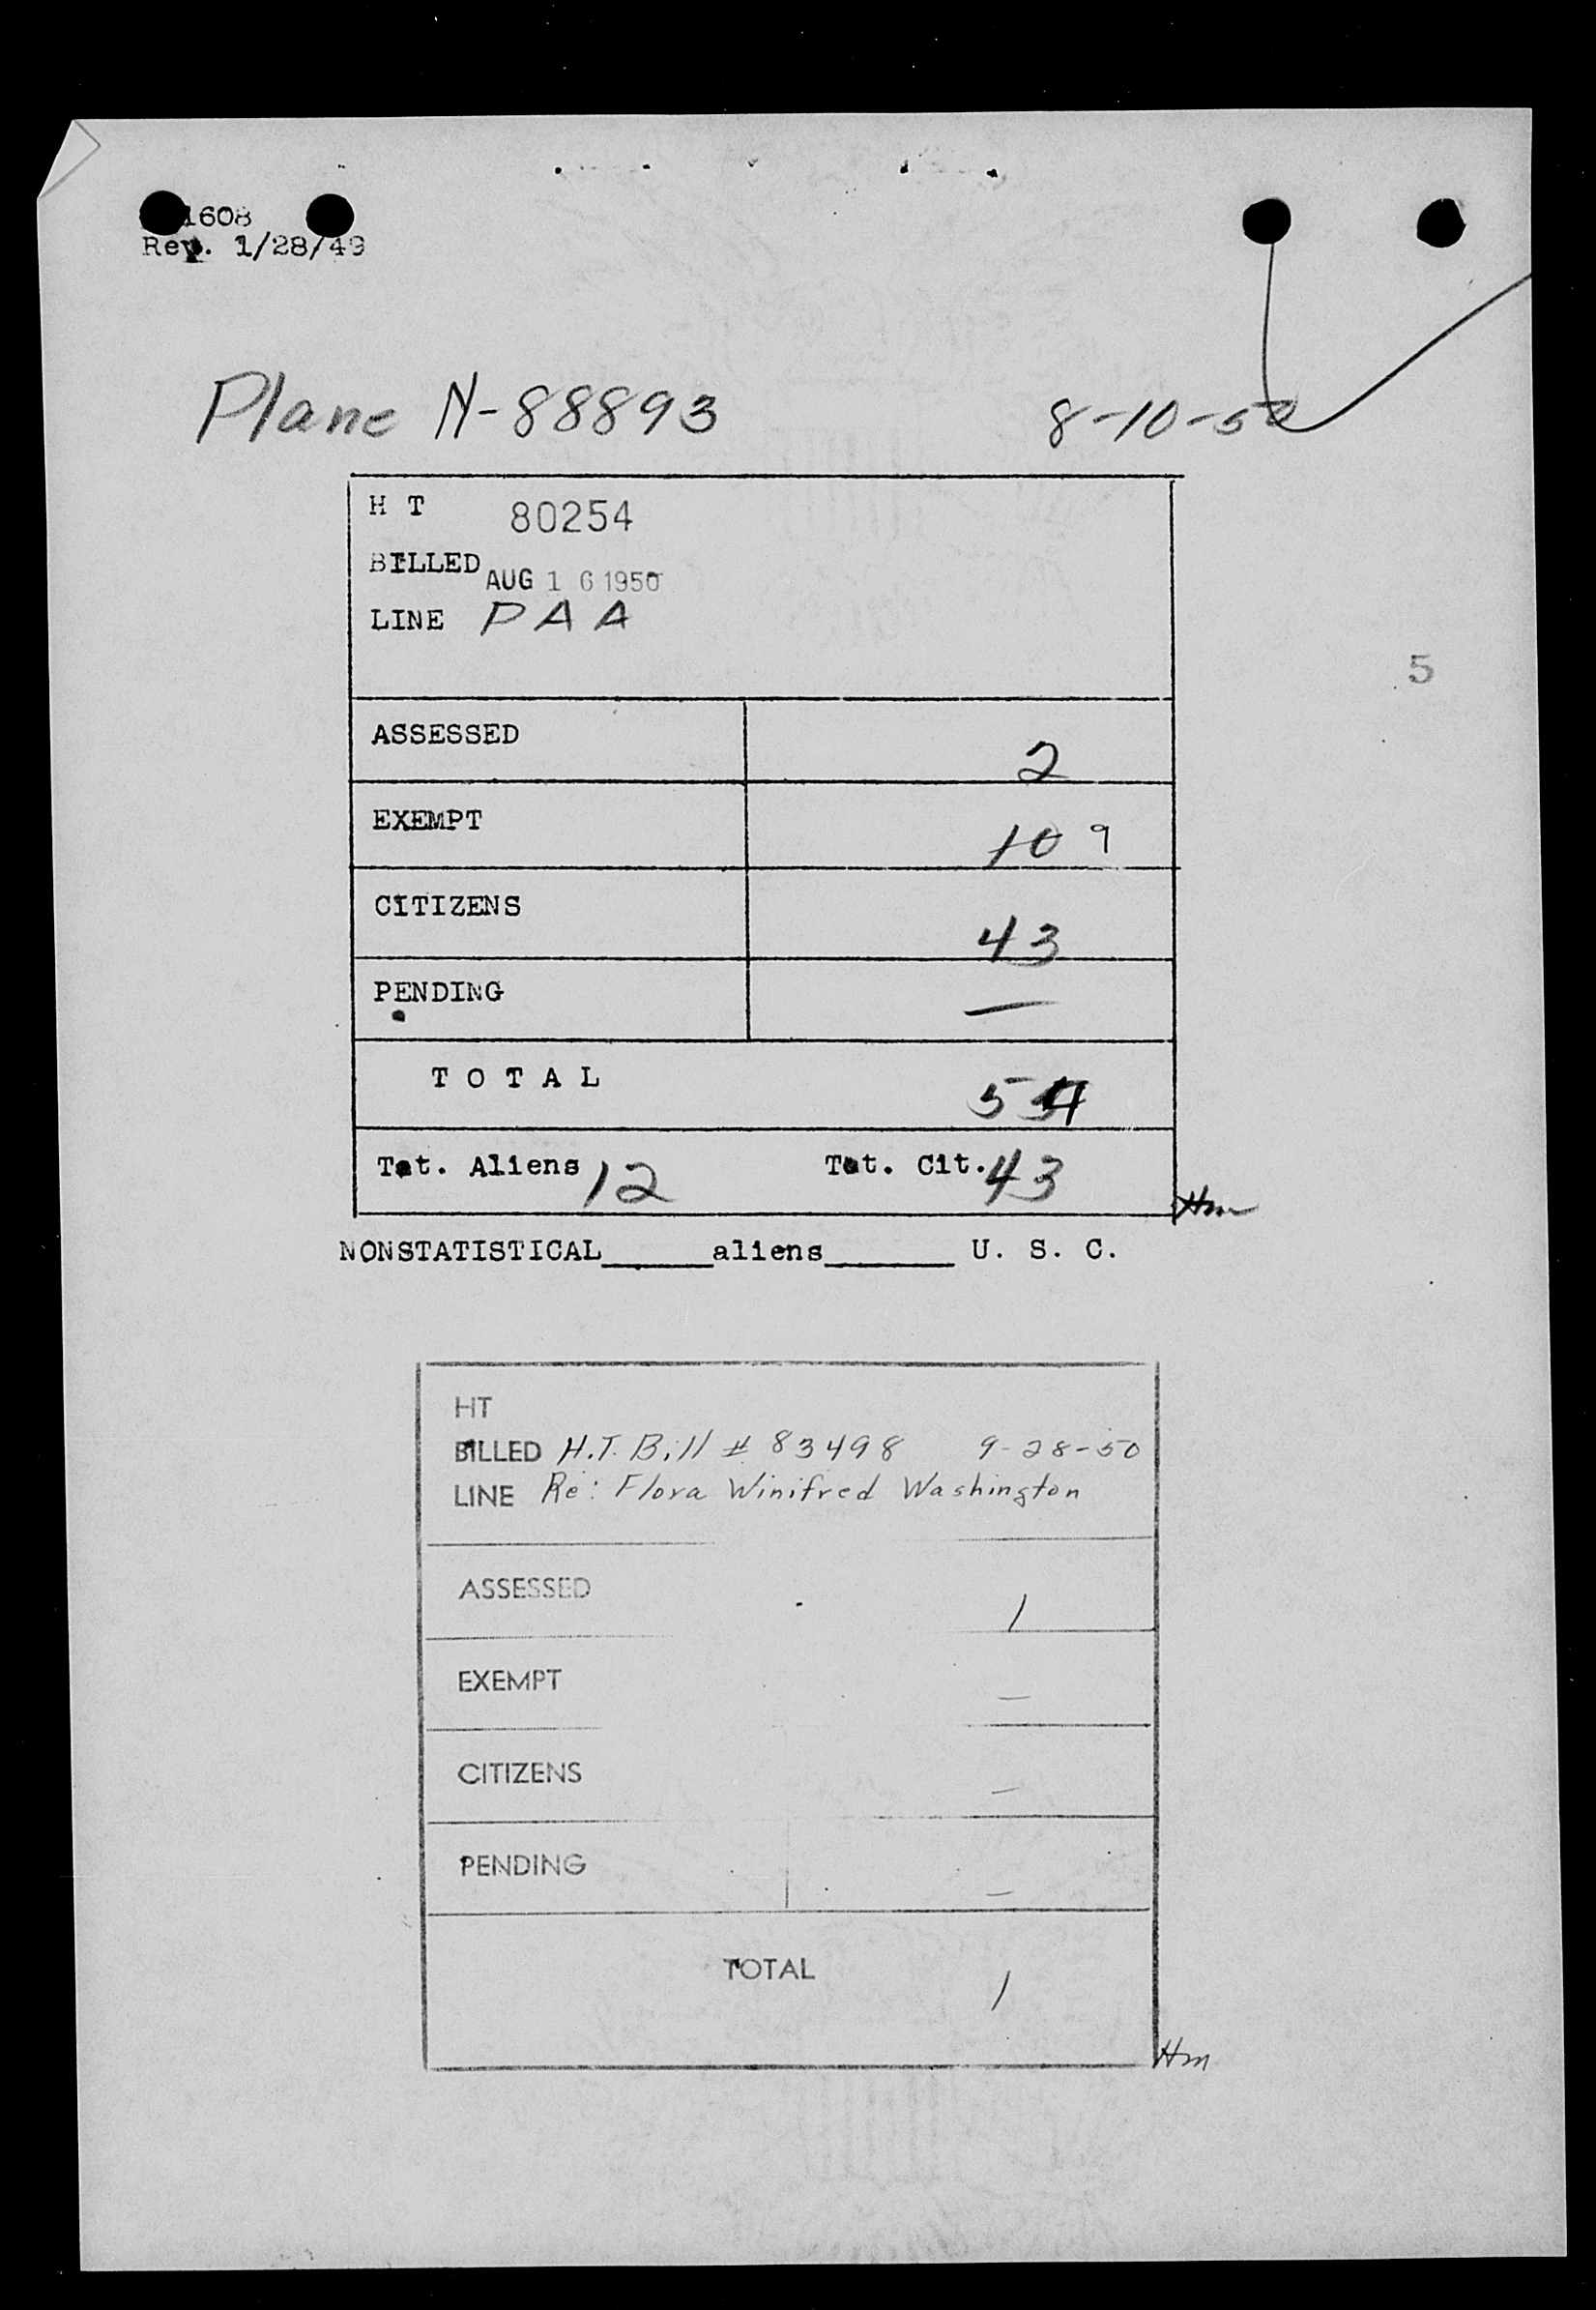 1608
Rev. 1/28/49
Plane N-88893 8-10-50
H T 80254
BILLED AUG 16 1950
LINE PAA
5
ASSESSED 2
EXEMPT 10 9
CITIZENS 43
PENDING —
T O T A L 54
Tot. Aliens 12 Tot. Cit. 43
Hm
NONSTATISTICAL______aliens_______ U. S. C.
HT
BILLED H.T. Bill # 83498 9-28-50
LINE Re: Flora Winifred Washington
ASSESSED 1
EXEMPT —
CITIZENS —
PENDING —
TOTAL 1
Hm